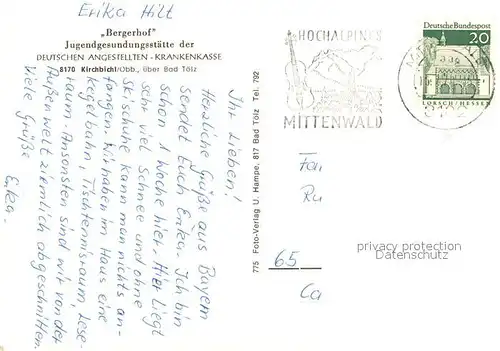 Erika Hilt
„Bergerhof"
Jugendgesundungsstätte der
DEUTSCHEN ANGESTELLTEN - KRANKENKASSE
8170 Kirchbichl/Obb., über Bad Tölz
Ihr Lieben!
Herzliche Grüße aus Bayern
sendet Euch Erika. Ich bin
schon 1 Woche hier. Hier liegt
sehr viel Schnee und ohne
Skischuhe kann man nichts an-
fangen. Wir haben im Haus eine
Kegelbahn, Tischtennisraum, Lese-
raum. Ansonsten sind wir von der
Außenwelt ziemlich abgeschnitten.
Viele Grüße
Erika.
775 Foto-Verlag U. Hampe, 817 Bad Tölz Tel. 792
HOCHALPINES
MITTENWALD
Deutsche Bundespost
20
LORSCH/HESSEN
Fam
Ru
65
Ca
privacy protection
Datenschutz